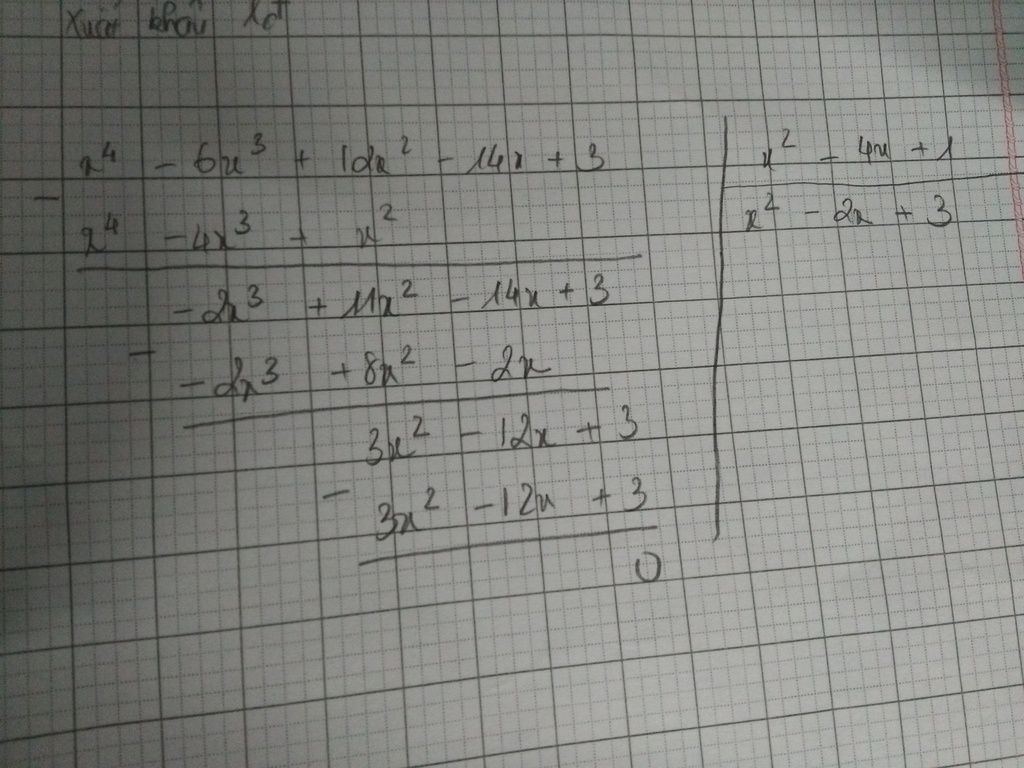 Xuất khẩu
x⁴ - 6x³ + 12x² - 14x + 3 | x² - 4x + 1
- x⁴ - 4x³ + x² | x² - 2x + 3
- 2x³ + 11x² - 14x + 3
- - 2x³ + 8x² - 2x
3x² - 12x + 3
- 3x² - 12x + 3
0